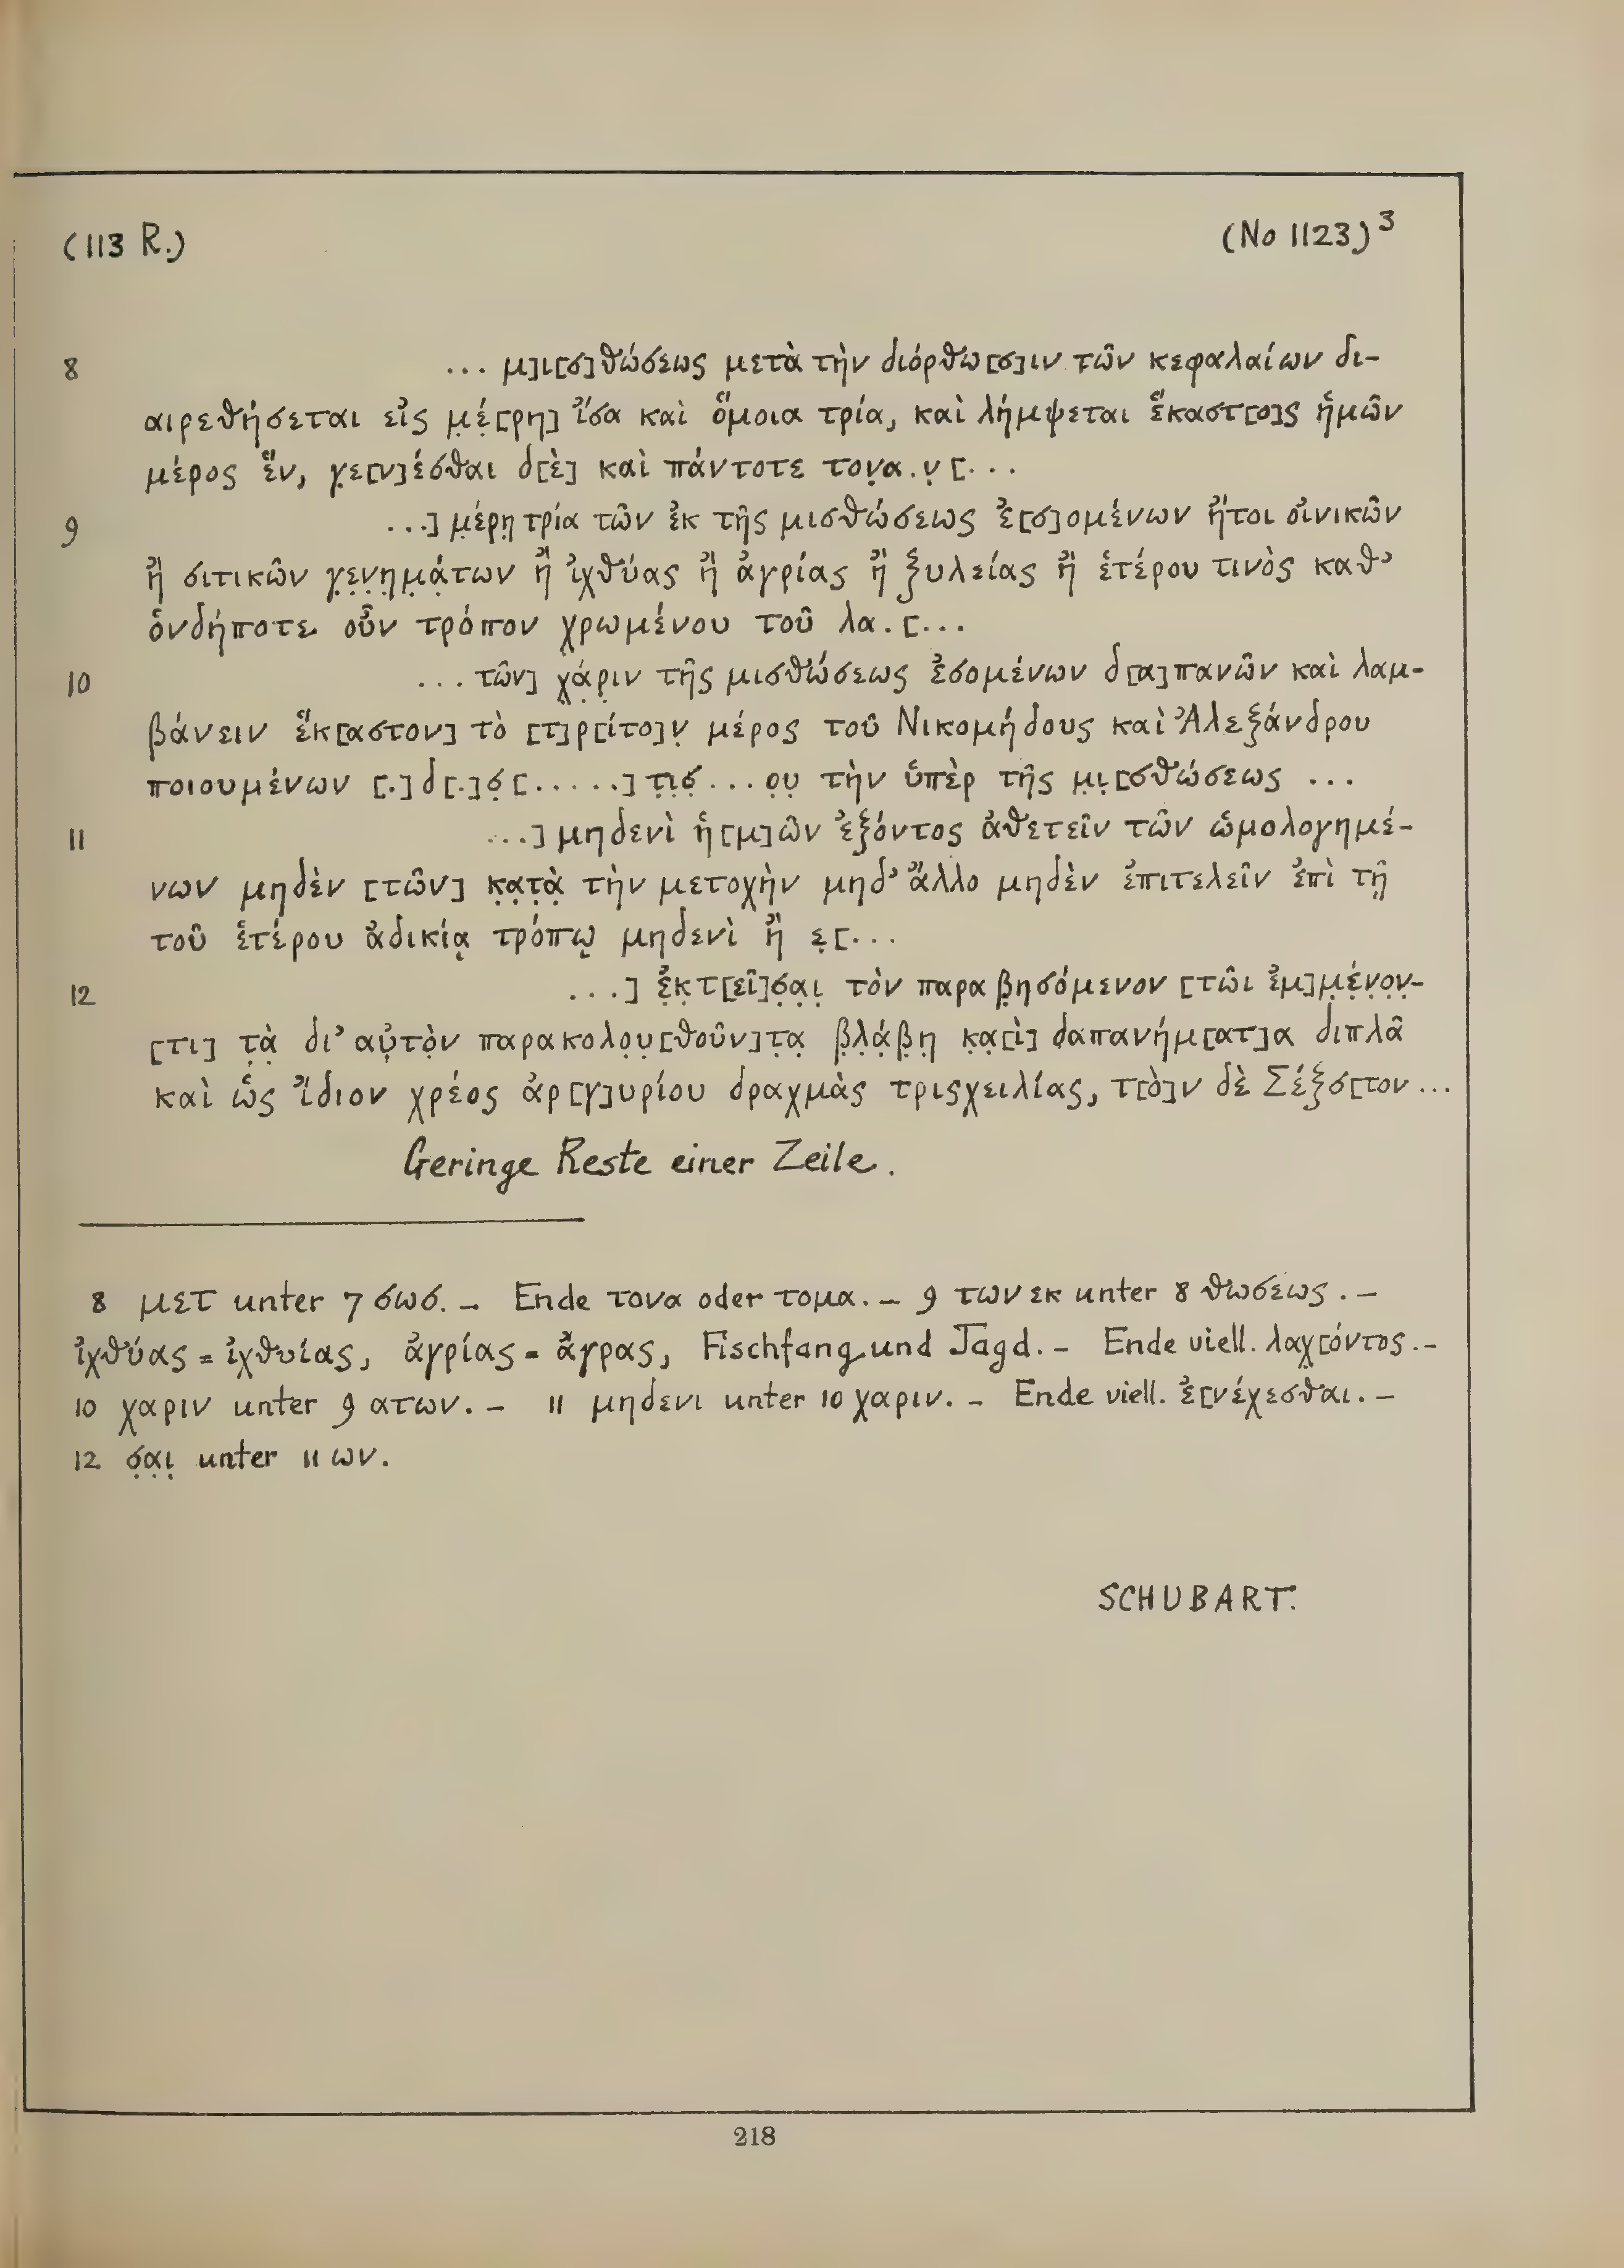 (113 R.) (No 1123)³
8 ... μ]ι[σ]θώσεως μετὰ τὴν διόρθω[σ]ιν τῶν κεφαλαίων δι-
αιρεθήσεται εἰς μ̣έ̣[ρη] ἴσα καὶ ὅμοια τρία, καὶ λήμψεται ἕκαστ[ο]ς ἡμῶν
μέρος ἕν, γ̣ε[ν]έσθαι δ[ὲ] καὶ πάντοτε τον̣α.ν̣ [...
9 ...] μ̣έρη̣ τρία τῶν ἐκ τῆς μισθώσεως ἐ[σ]ομένων ἤτοι οἰνικῶν
ἢ σιτικῶν γ̣ε̣ν̣η̣μ̣ά̣των ἢ ἰχθύας ἢ ἀγρίας ἢ ξυλείας ἢ ἑτέρου τινὸς καθ᾽
ὁνδήποτε οὖν τρόπον χρωμένου τοῦ λα.[...
10 ... τῶν] χ̣ά̣ρ̣ιν τῆς μισθώσεως ἐσομένων δ[α]πανῶν καὶ λαμ-
βάνειν ἕκ[αστον] τὸ [τ]ρ[ίτο]ν̣ μέρος τοῦ Νικομήδους καὶ Ἀλεξάνδρου
ποιουμένων [.]δ[.]σ̣[.....]τ̣ι̣σ̣...ο̣υ̣ τὴν ὑπὲρ τῆς μ̣ι̣[σθώσεως ...
11 ...] μηδενὶ ἡ[μ]ῶν ἐξόντος ἀθετεῖν τῶν ὡμολογημέ-
νων μηδὲν [τῶν] κ̣α̣τ̣ὰ̣ τὴν μετοχὴν μηδ᾽ ἄλλο μηδὲν ἐπιτελεῖν ἐπὶ τῇ
τοῦ ἑτέρου ἀδικίᾳ τρόπῳ μηδενὶ ἢ ε̣[...
12 ...] ἐ̣κ̣τ[εῖ]σ̣α̣ι̣ τὸν παραβ̣ησόμενον [τῶι ἐμ]μ̣έ̣ν̣ο̣ν̣-
[τι] τ̣ὰ̣ δι᾽ αὐ̣τὸ̣ν παρακολο̣υ̣[θοῦν]τ̣α̣ β̣λ̣ά̣β̣η̣ κ̣α̣[ὶ] δαπανήμ[ατ]α διπλᾶ
καὶ ὡς ἴδιον χρέος ἀρ[γ]υρίου δραχμὰς τρισχειλίας, τ[ὸ]ν δὲ Σέξσ[τον ...
Geringe Reste einer Zeile.
8 μετ unter 7 σωσ. – Ende τονα oder τομα. – 9 των εκ unter 8 θωσεως. –
ἰχθύας = ἰχθυίας, ἀγρίας = ἄγρας, Fischfang und Jagd. – Ende viell. λαχ̣[όντος. –
10 χαριν unter 9 ατων. – 11 μηδενι unter 10 χαριν. – Ende viell. ἐ[νέχεσθαι. –
12 σ̣α̣ι̣ unter 11 ων.
SCHUBART.
218